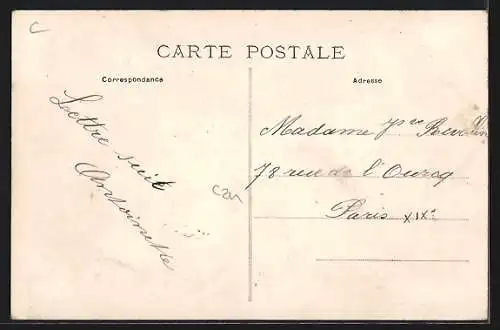 C
CARTE POSTALE
Correspondance
Adresse
Lettre suit
Antoinette
Madame
78 rue de l'Ourcq
Paris XIXe